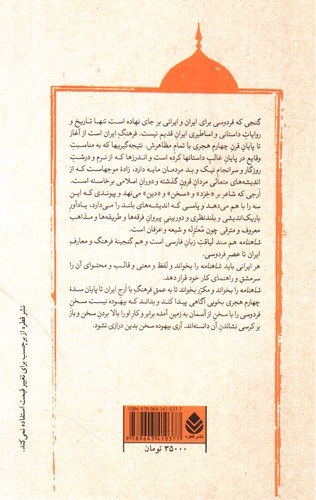 گنجی که فردوسی برای ایران و ایرانی بر جای نهاده است تنها تاریخ و
روایات داستانی و اساطیری ایرانِ قدیم نیست. فرهنگِ ایران است از آغاز
تا پایانِ قرنِ چهارم هجری با تمام مظاهرش. نتیجه‌گیریها که به مناسبتِ
وقایع در پایانِ غالبِ داستانها کرده است و اندرزها که از نرم و درشتِ
روزگار و سرانجام نیک و بدِ مردمان مایه دارد، زادهٔ موجهاست که از
اندیشه‌های متعالیِ مردانِ قرونِ گذشته و دورانِ اسلامی برخاسته است.
اَرجی که شاعر بر «خِرَد» و «سخن» و «دین» می‌نهد و پیوندی که این
سه را با هم می‌دهد و پاسی که اندیشه‌های بلند را می‌دارد، یادآورِ
باریک‌اندیشی و بلندنظری و دوربینیِ پیروانِ فرقه‌ها و طریقه‌ها و مذاهب
معروف و مترقی چون مُعتَزِله و شیعه و عرفان است.
شاهنامه هم سندِ لیاقتِ زبانِ فارسی است و هم گنجینهٔ فرهنگ و معارفِ
ایران تا عصرِ فردوسی.
هر ایرانی باید شاهنامه را بخواند و لفظ و معنی و قالب و محتوای آن را
سرمشق و راهنمای کارِ خود قرار دهد.
شاهنامه را بخواند و مکرّر بخواند تا به عمقِ فرهنگِ با ارجِ ایران تا پایانِ سدهٔ
چهارم هجری بخوبی آگاهی پیدا کند و بداند که بیهوده نیست سخنِ
فردوسی را یا سخن از آسمان به زمین آمده برابر و کارِ او را بالا بردنِ سخن و باز
بر کرسی نشاندنِ آن دانسته‌اند. آری بیهوده سخن بدین درازی نشود.
نشر قطره از برچسب برای تغییر قیمت استفاده نمی‌کند.
ISBN: 978-964-341-037-7
9789643410377
۳۵۰۰۰ تومان
نشر قطره